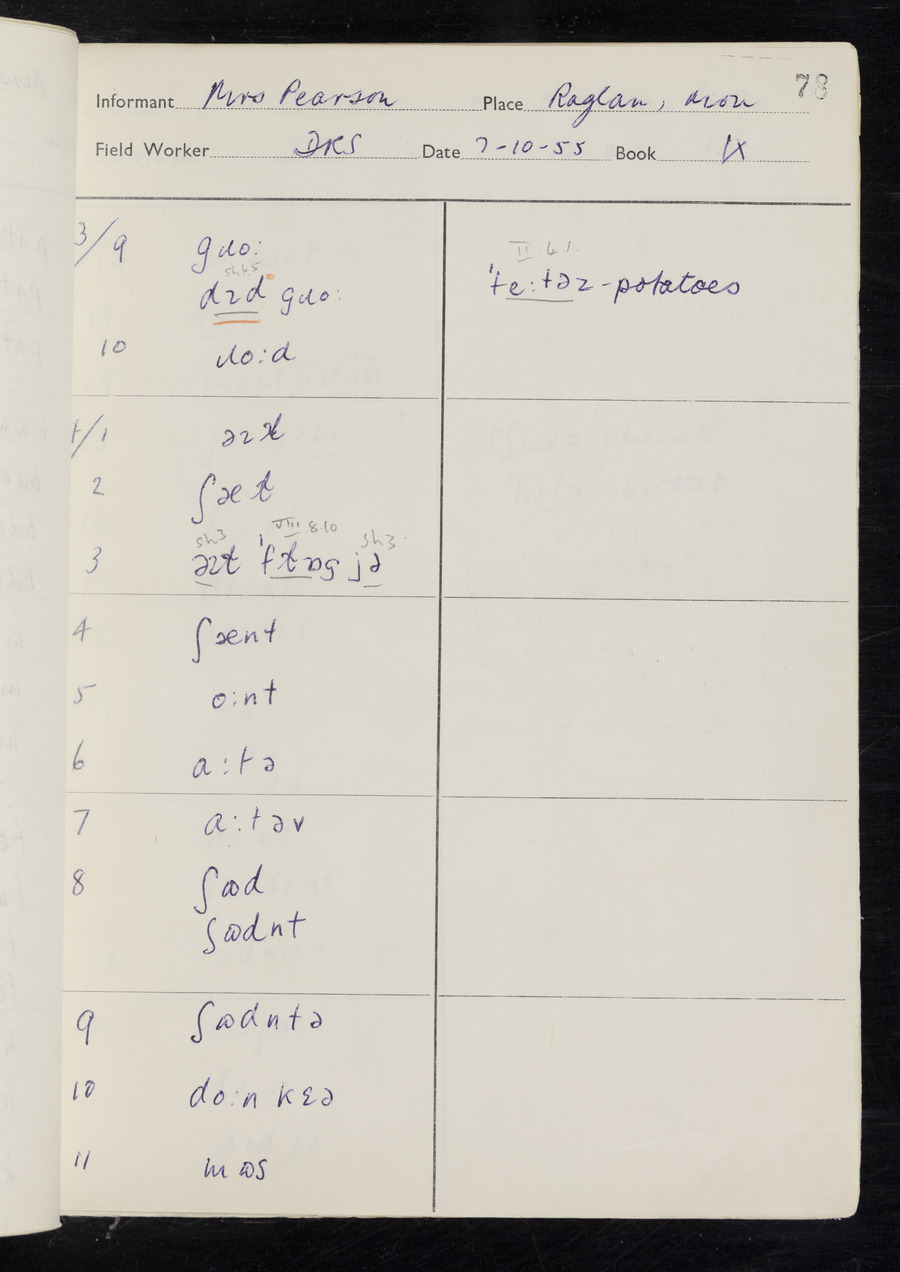 78
Informant Mrs Pearson Place Raglan, Mon
Field Worker DRS Date 7-10-55 Book IX
3/9 gɹo:
sh 4.5
dɪd gɹo:
II. 4.1.
ˈte:təz - potatoes
10 ɹo:d
4/1 əɪɫ
2 ʃæɫ
sh3 VIII.8.10 sh3
3
4 ʃænt
5 o:nt
6 a:tə
7 a:təv
8 ʃɷd
ʃɷdnt
9 ʃɷdntə
10 do:n kɛə
11 mɷs